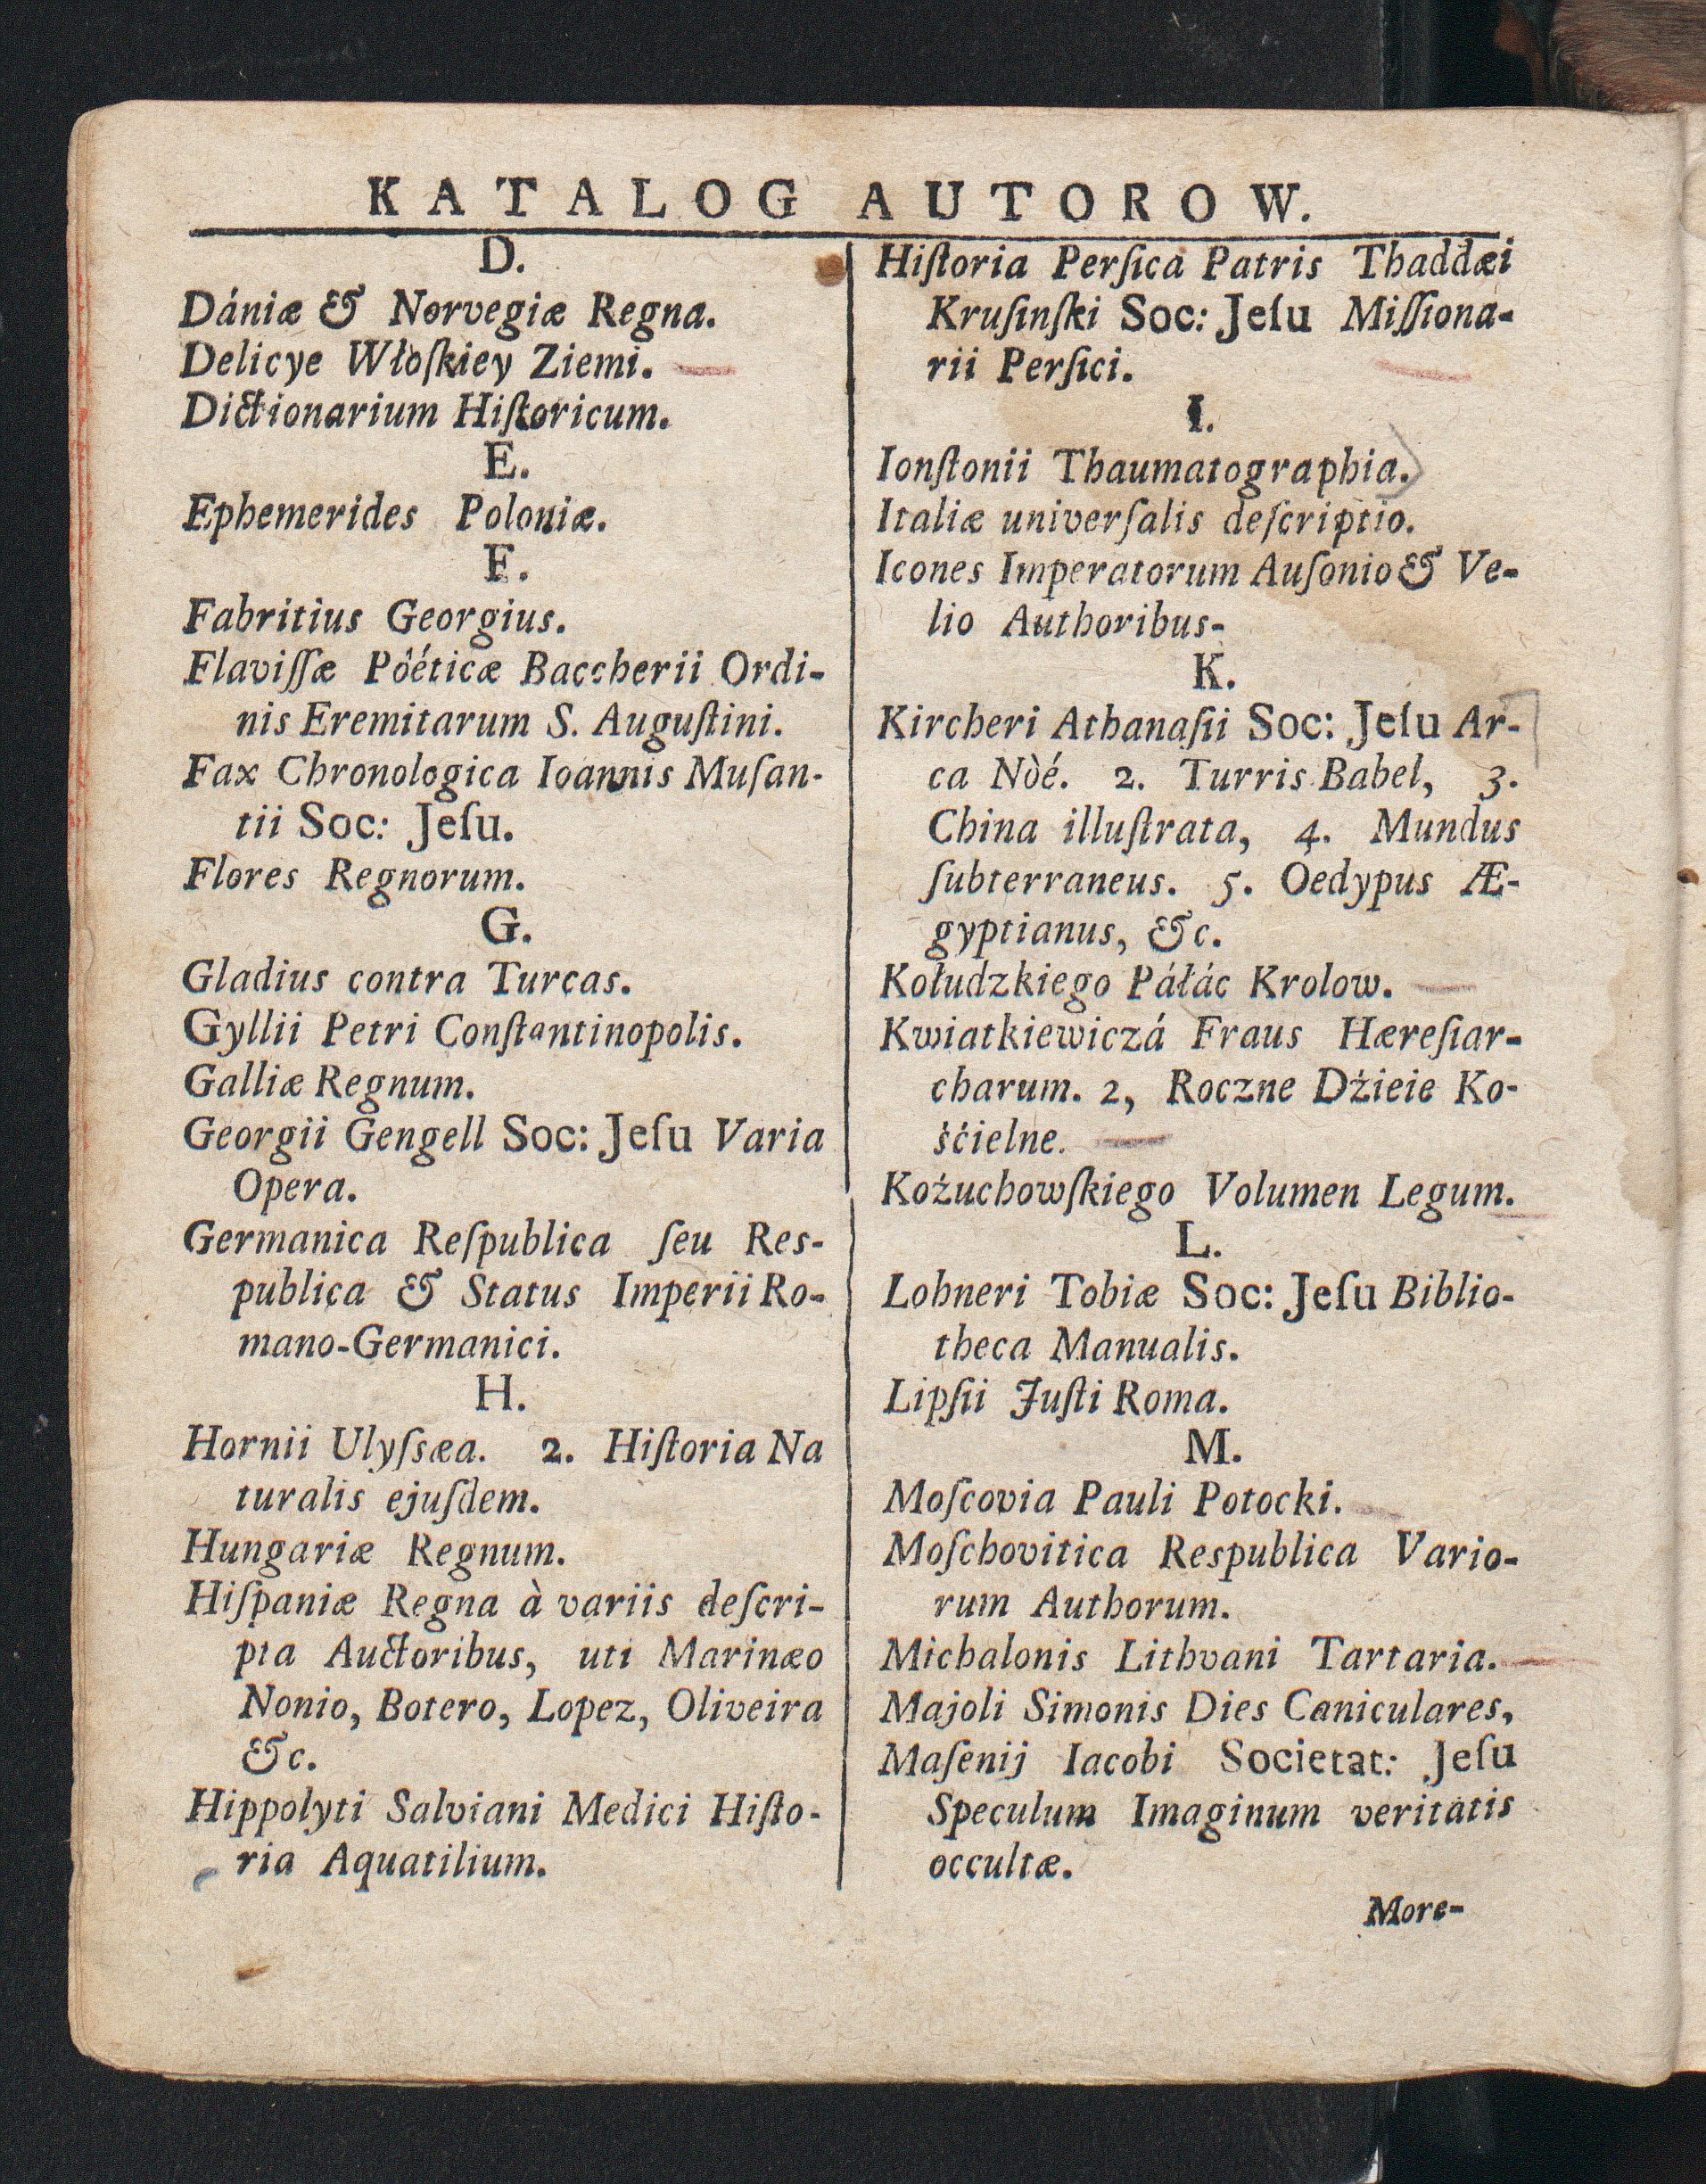 KATALOG AUTOROW.
D.
Dániæ & Norvegiæ Regna.
Delicye Włoſkiey Ziemi.
Dictionarium Hiſtoricum.
E.
Ephemerides Poloniæ.
F.
Fabritius Georgius.
Flaviſſæ Pöéticæ Baccherii Ordi-
nis Eremitarum S. Auguſtini.
Fax Chronologica Ioannis Muſan-
tii Soc: Jeſu.
Flores Regnorum.
G.
Gladius contra Turcas.
Gyllii Petri Conſtantinopolis.
Galliæ Regnum.
Georgii Gengell Soc: Jeſu Varia
Opera.
Germanica Reſpublica ſeu Res-
publica & Status Imperii Ro-
mano-Germanici.
H.
Hornii Ulyſsæa. 2. Hiſtoria Na
turalis ejuſdem.
Hungariæ Regnum.
Hiſpaniæ Regna à variis deſcri-
pta Auctoribus, uti Marinæo
Nonio, Botero, Lopez, Oliveira
&c.
Hippolyti Salviani Medici Hiſto-
ria Aquatilium.
Hiſtoria Perſica Patris Thaddæi
Kruſinſki Soc: Jeſu Miſſiona-
rii Perſici.
I.
Ionſtonii Thaumatographia.
Italiæ univerſalis deſcriptio.
Icones Imperatorum Auſonio & Ve-
lio Authoribus-
K.
Kircheri Athanaſii Soc: Jeſu Ar-
ca Nòé. 2. Turris Babel, 3.
China illuſtrata, 4. Mundus
ſubterraneus. 5. Oedypus Æ-
gyptianus, &c.
Kołudzkiego Páłác Krolow.
Kwiatkiewiczá Fraus Hæreſiar-
charum. 2, Roczne Dżieie Ko-
śćielne.
Kożuchowſkiego Volumen Legum.
L.
Lohneri Tobiæ Soc: Jeſu Biblio-
theca Manualis.
Lipſii Juſti Roma.
M.
Moſcovia Pauli Potocki.
Moſchovitica Respublica Vario-
rum Authorum.
Michalonis Lithvani Tartaria.
Majoli Simonis Dies Caniculares,
Maſenij Iacobi Societat: Jeſu
Speculum Imaginum veritatis
occultæ.
More-